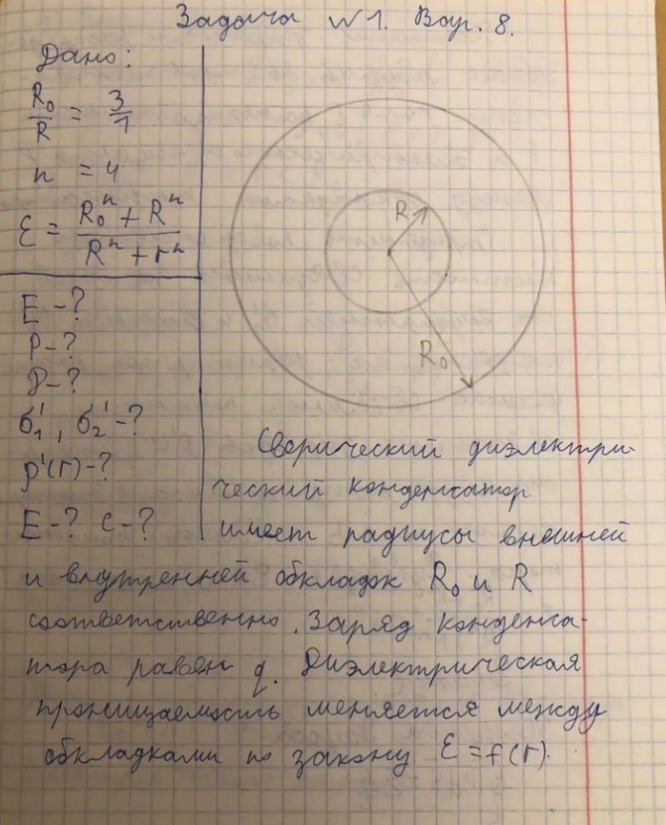 Задача №1. Вар. 8.
Дано:
R₀/R = 3/1
n = 4
ε = (R₀ⁿ + Rⁿ)/(Rⁿ + rⁿ)
E - ?
P - ?
D - ?
σ₁', σ₂' - ?
ρ'(r) - ?
E - ? C - ?
R
R₀
Сверический диэлектри-
ческий конденсатор
имеет радиусы внешней
и внутренней обкладок R₀ и R
соответственно. Заряд конденса-
тора равен q. Диэлектрическая
проницаемость меняется между
обкладками по закону ε = f(r).